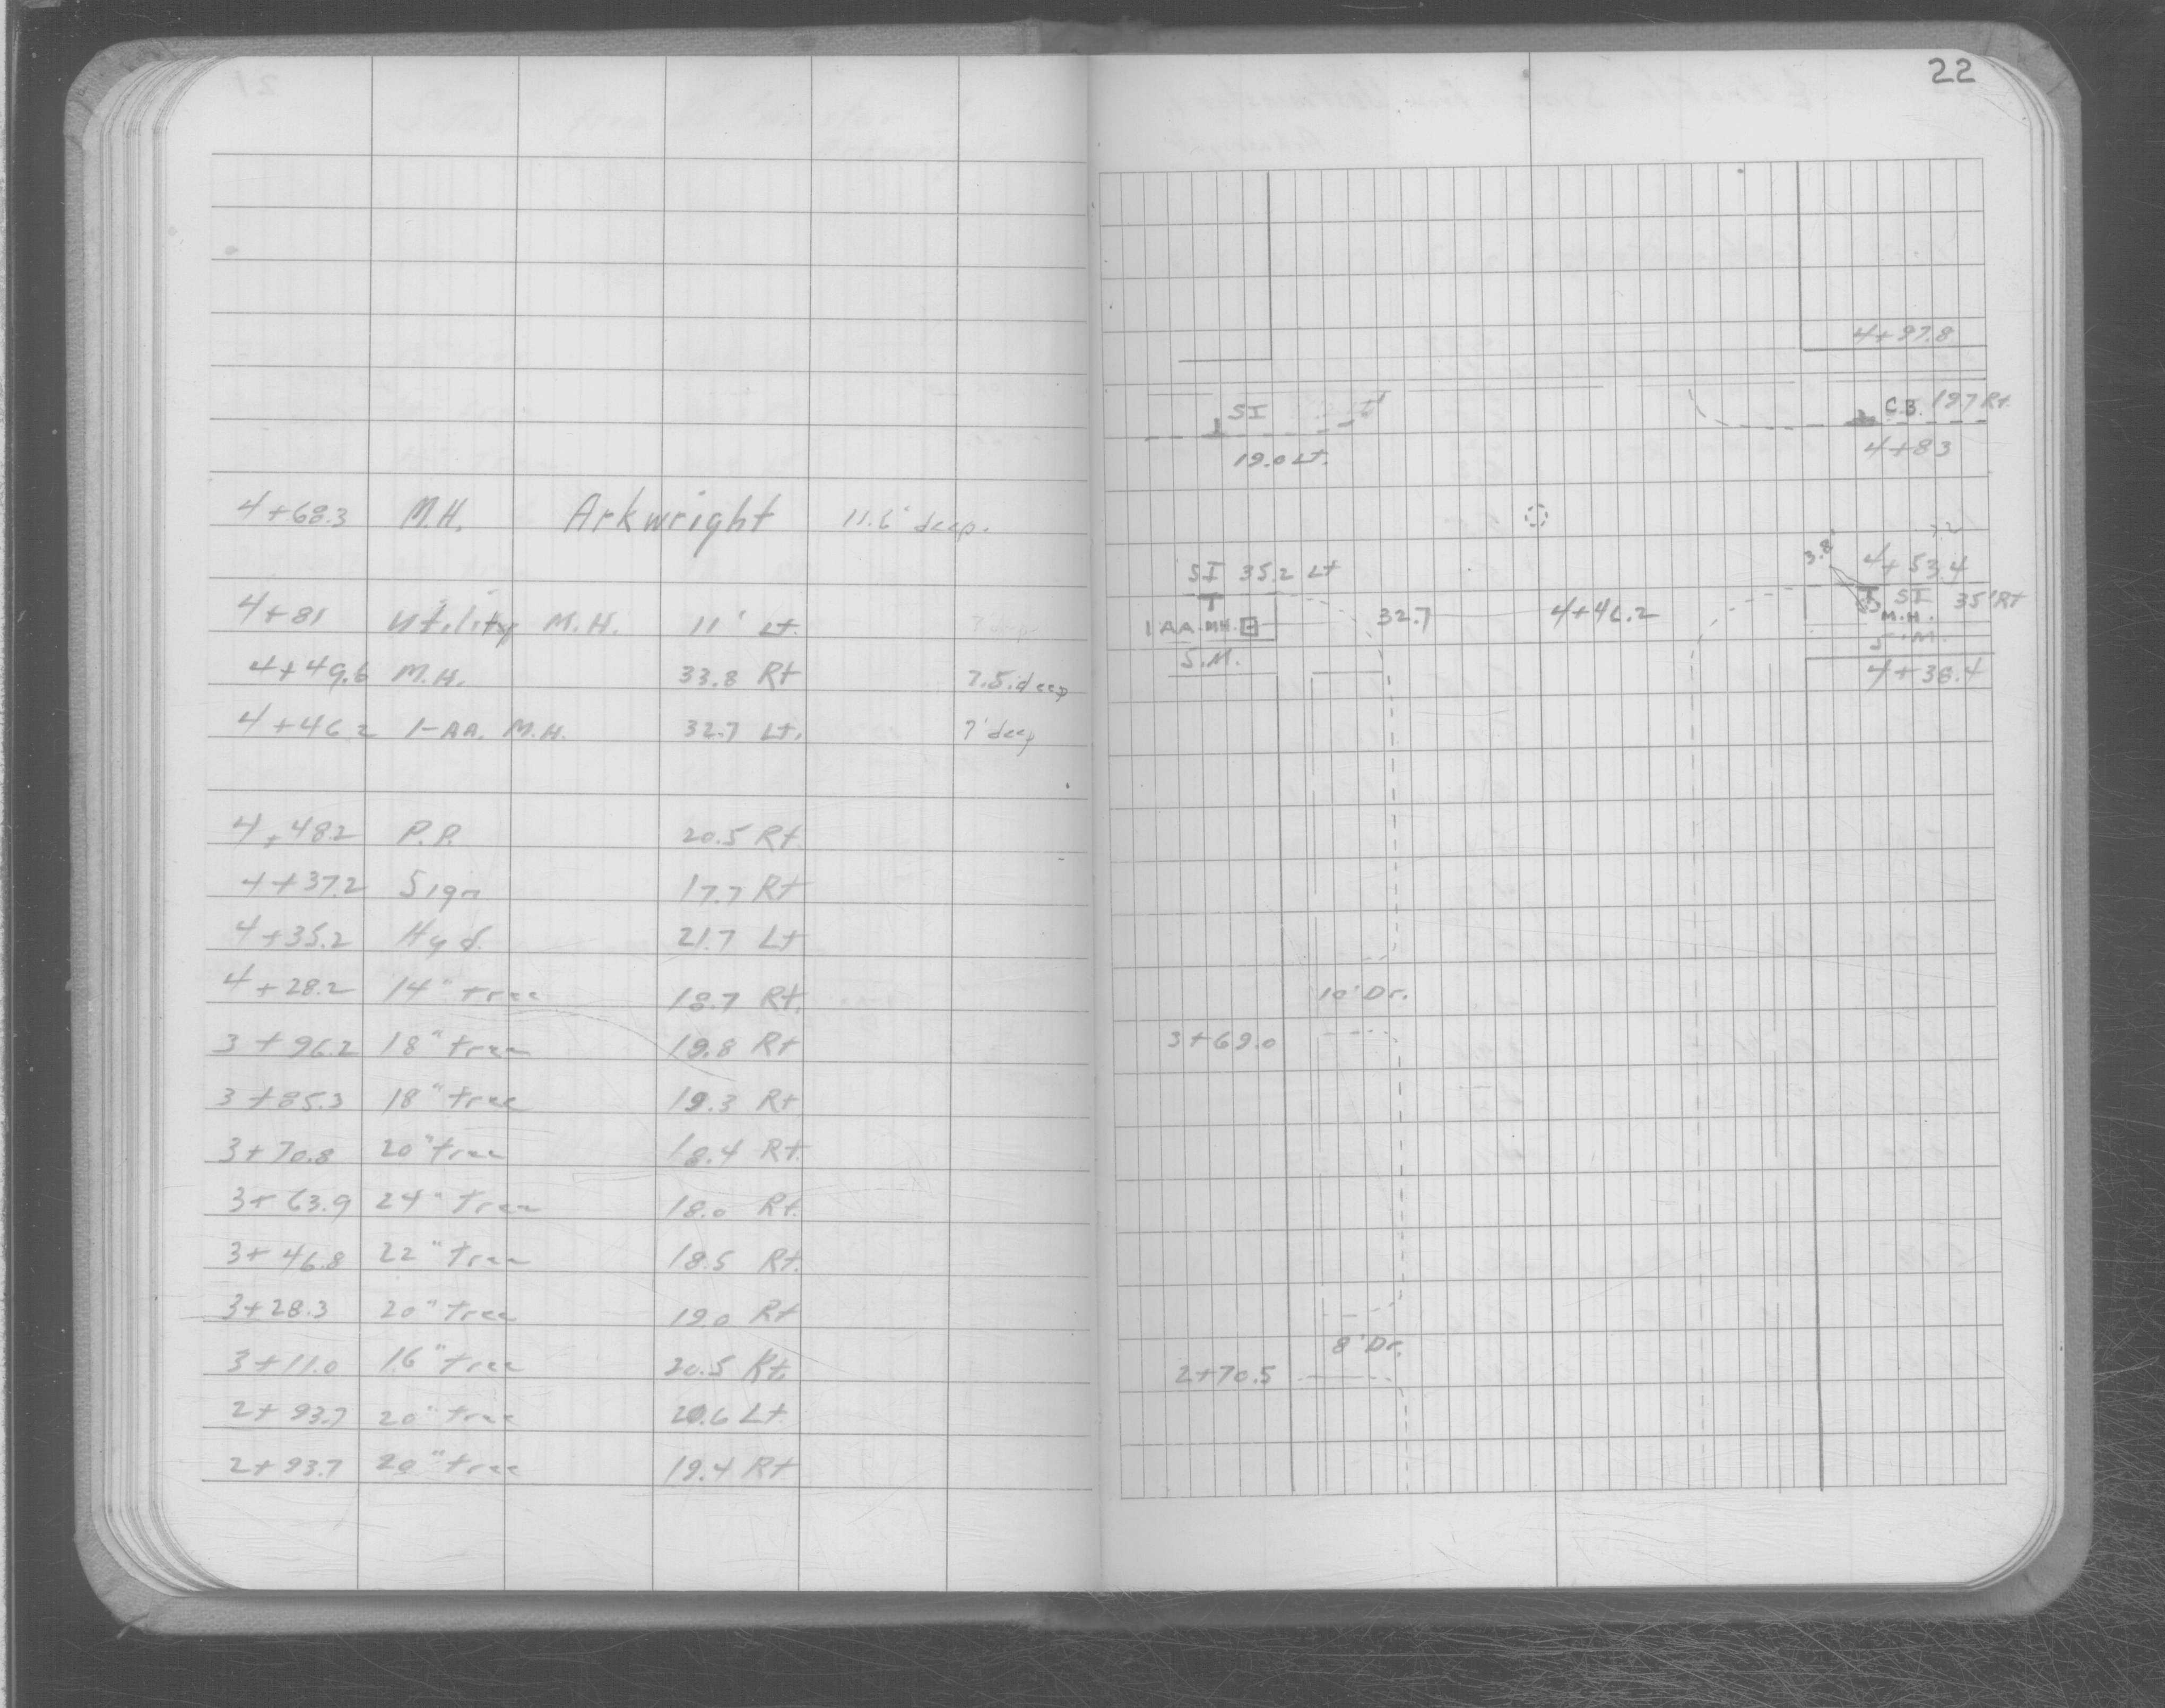 4+68.3 M.H. Arkwright 11.6' deep.
4+81 Utility M.H. 11' Lt.
4+49.6 M.H. 33.8 Rt 7.5 deep
4+46.2 1-AA. M.H. 32.7 Lt. 7' deep
4+48.2 P.P. 20.5 Rt.
4+37.2 Sign 17.7 Rt
4+35.2 Hyd. 21.7 Lt
4+28.2 14" tree 18.7 Rt.
3+96.2 18" tree 19.8 Rt
3+85.3 18" tree 19.3 Rt
3+70.8 20" tree 18.4 Rt.
3+63.9 24" tree 18.0 Rt.
3+46.8 22" tree 18.5 Rt.
3+28.3 20" tree 19.0 Rt
3+11.0 16" tree 20.5 Rt.
2+93.7 20" tree 20.6 Lt
2+93.7 20" tree 19.4 Rt
22
4+97.8
SI
19.0 Lt.
C.B. 19.7 Rt.
4+83
3.8'
4+53.4
SI 35.2 Lt
SI 35' Rt
1 AA. MH.
M.H.
32.7 4+46.2
S.M.
S.M.
4+38.4
10' Dr.
3+69.0
8' Dr.
2+70.5